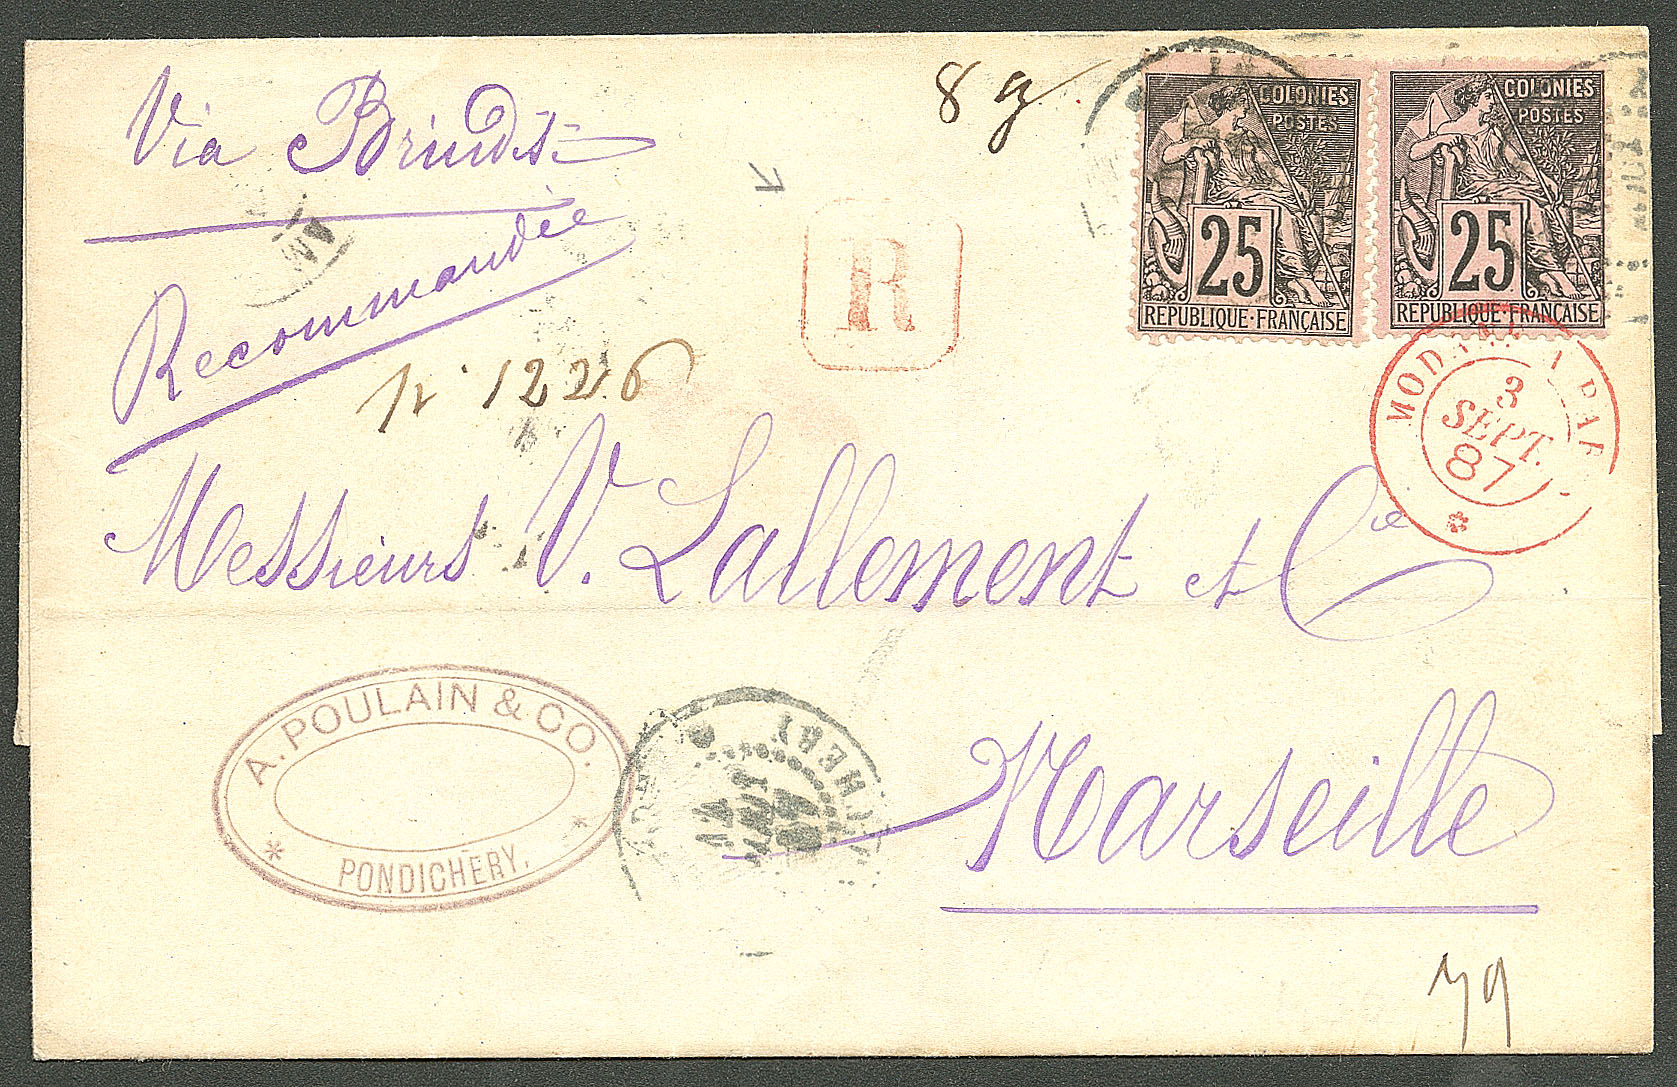 Via Brindisi
8 g.
Recommandée
N° 1226
R
COLONIES
POSTES
25
REPUBLIQUE·FRANÇAISE
COLONIES
POSTES
25
REPUBLIQUE·FRANÇAISE
3
SEPT.
87
Messieurs V. Lallement et Cie
Marseille
A. POULAIN & CO.
* PONDICHERY. *